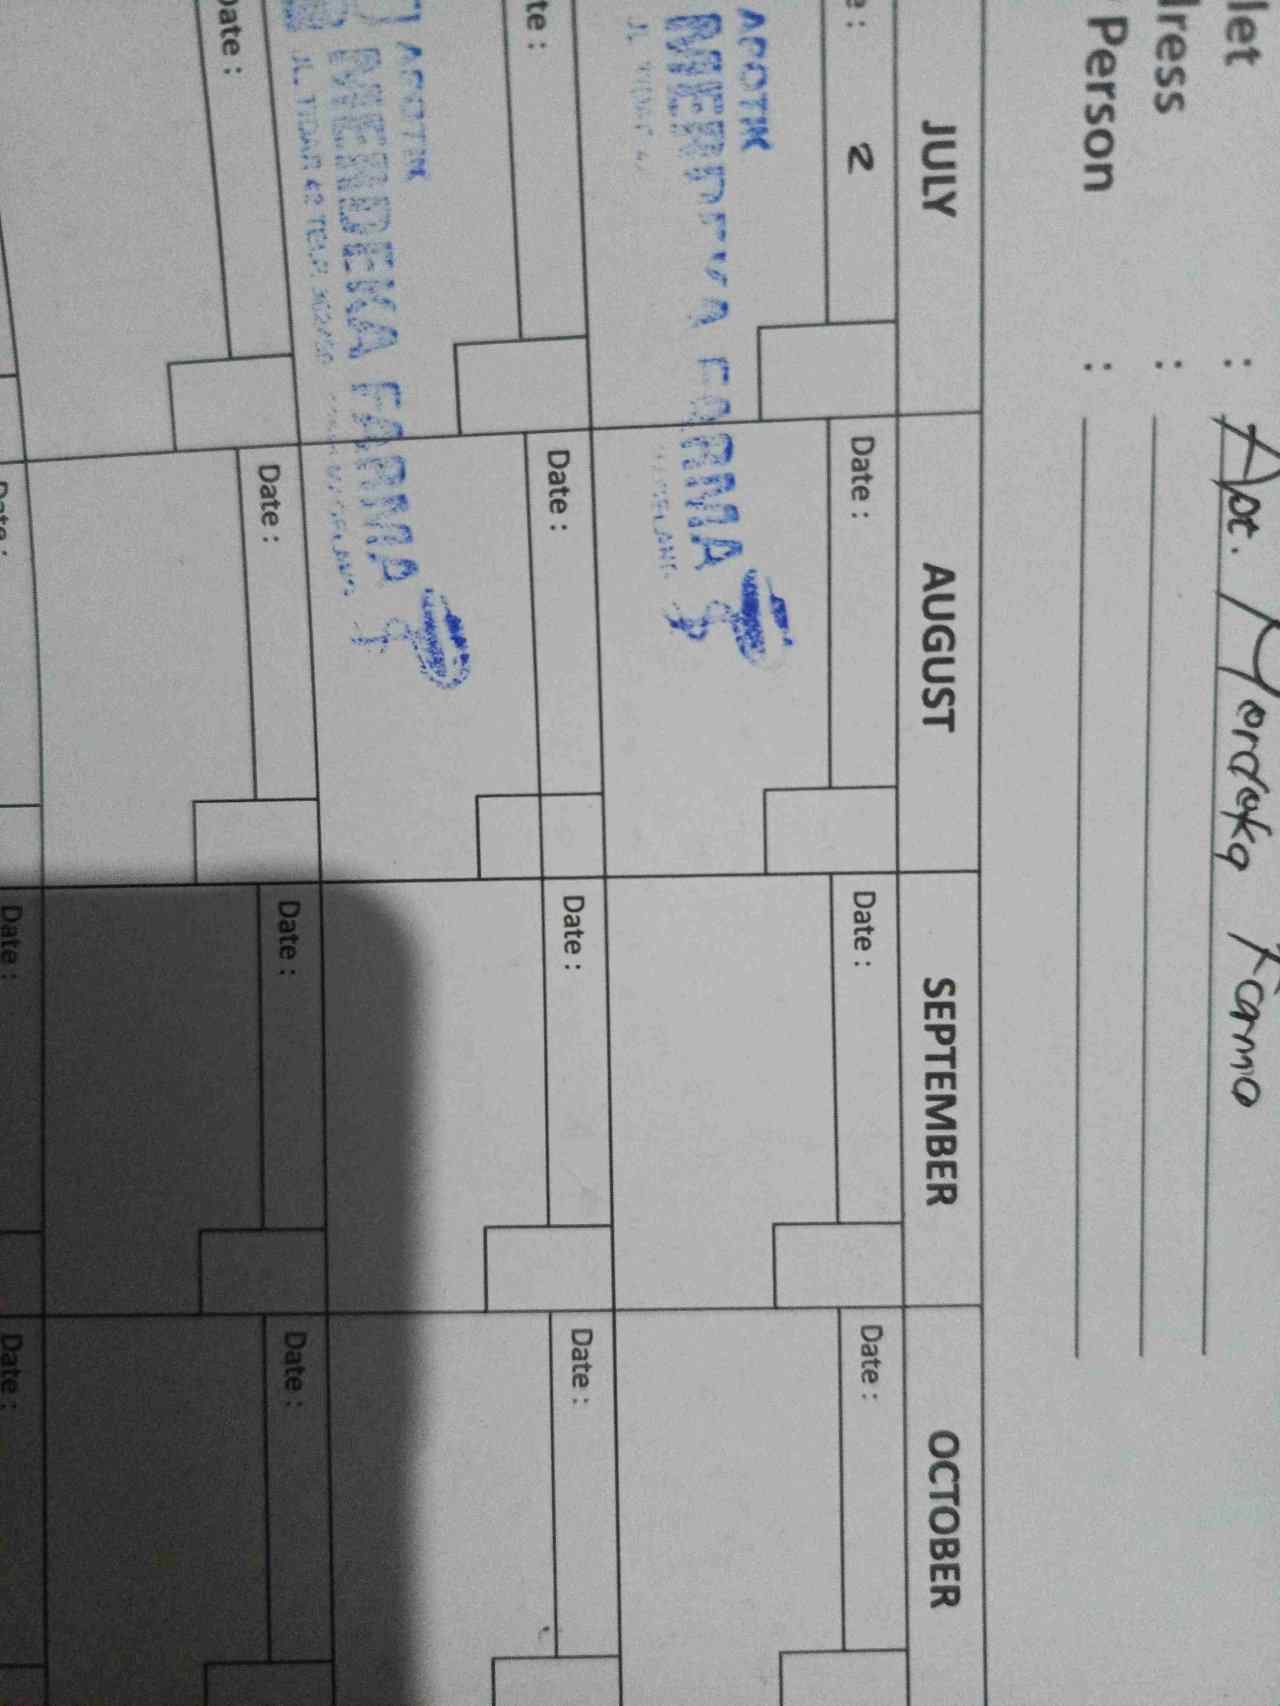 let : Apt. Merdeka Farma
ress :
Person :
JULY AUGUST SEPTEMBER OCTOBER
e : 2 Date : Date : Date :
APOTIK
MERDEKA FARMA
JL.
te : Date : Date : Date :
APOTIK
MERDEKA FARMA
JL. TIDAR 42 TELP.
Date : Date : Date : Date :
Date : Date : Date :